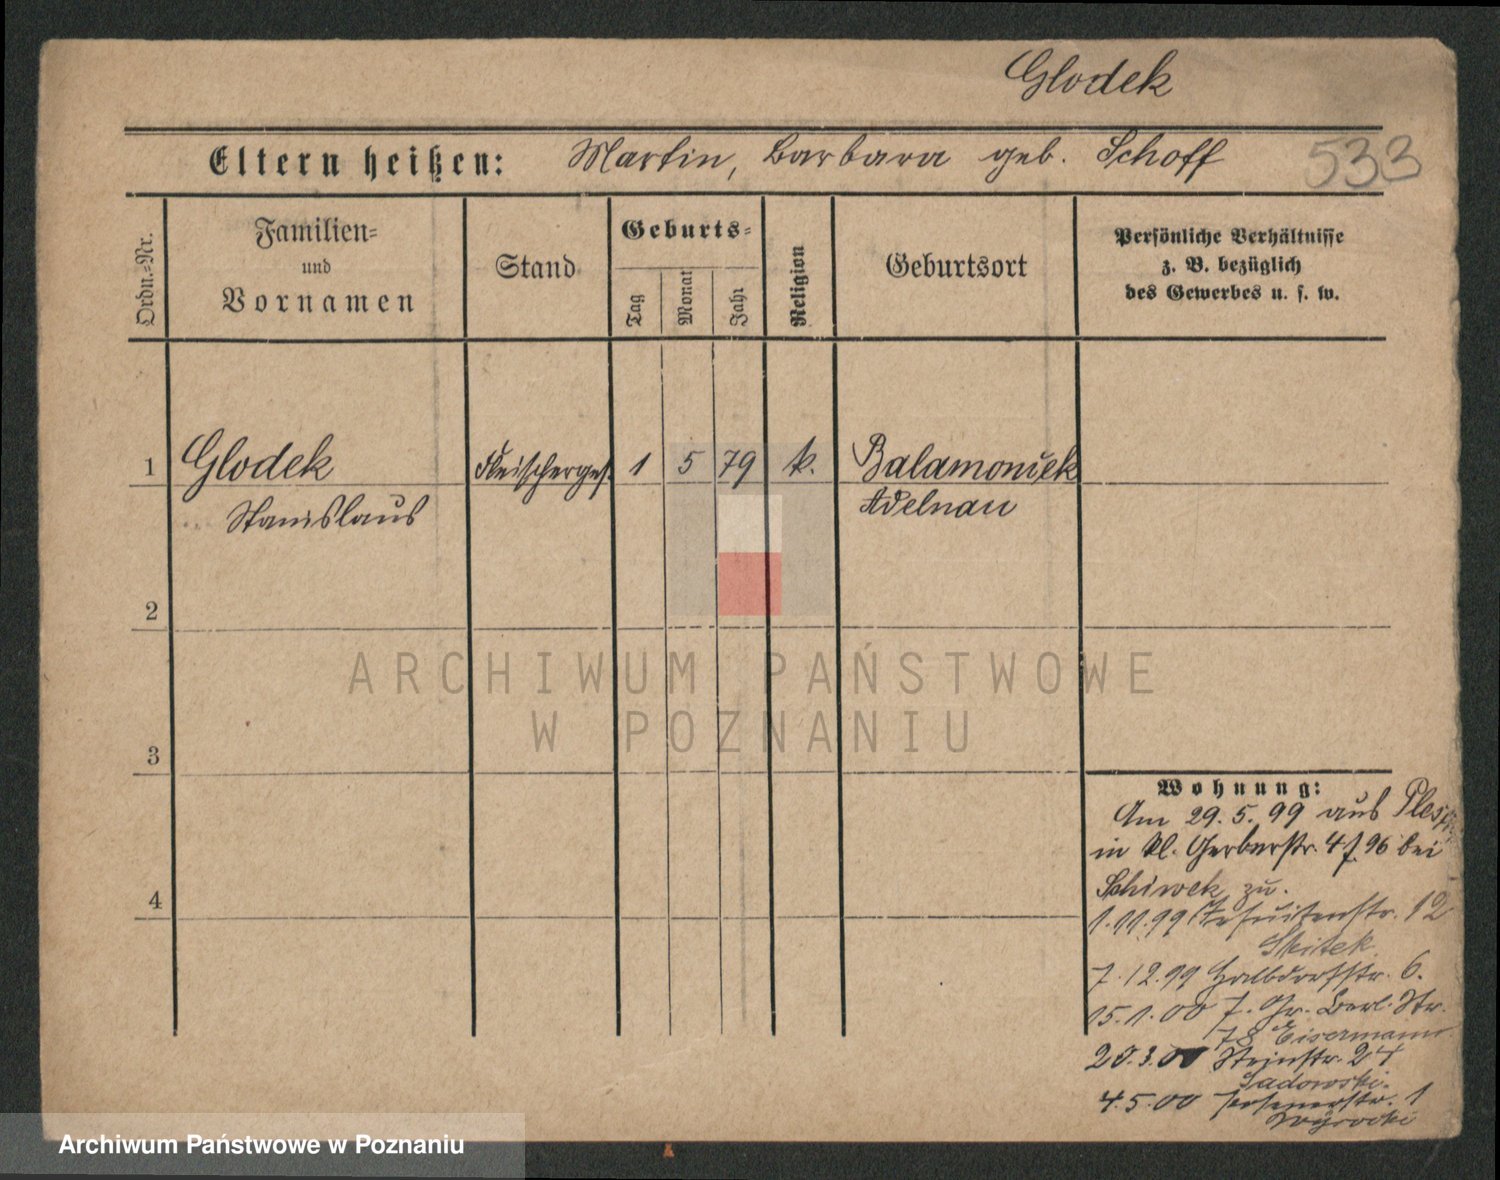 Glodek
Eltern heißen: Martin, Barbara geb. Schoff
533
Ordn.-Nr.
Familien-
und
Vornamen
Stand
Geburts-
Tag
Monat
Jahr
Religion
Geburtsort
Persönliche Verhältnisse
z. B. bezüglich
des Gewerbes u. s. w.
1 Glodek Fleischerges. 1 5 79 k. Balamoncek
Stanislaus Adelnau
2
3
4
ARCHIWUM PAŃSTWOWE
W POZNANIU
Wohnung:
Am 29. 5. 99 aus
in kl. Gerberstr. 4 96 bei
Schiwek zu.
1. 11. 99 Jesuitenstr. 12
Skitek
7. 12. 99 Halbdorfstr. 6.
15. 1. 00 Gr. Berl. Str.
78 Eisermann
20. 3. 00 Steinstr.
Sadowski.
4. 5. 00 Posenerstr. 1
Wyrocki
Archiwum Państwowe w Poznaniu